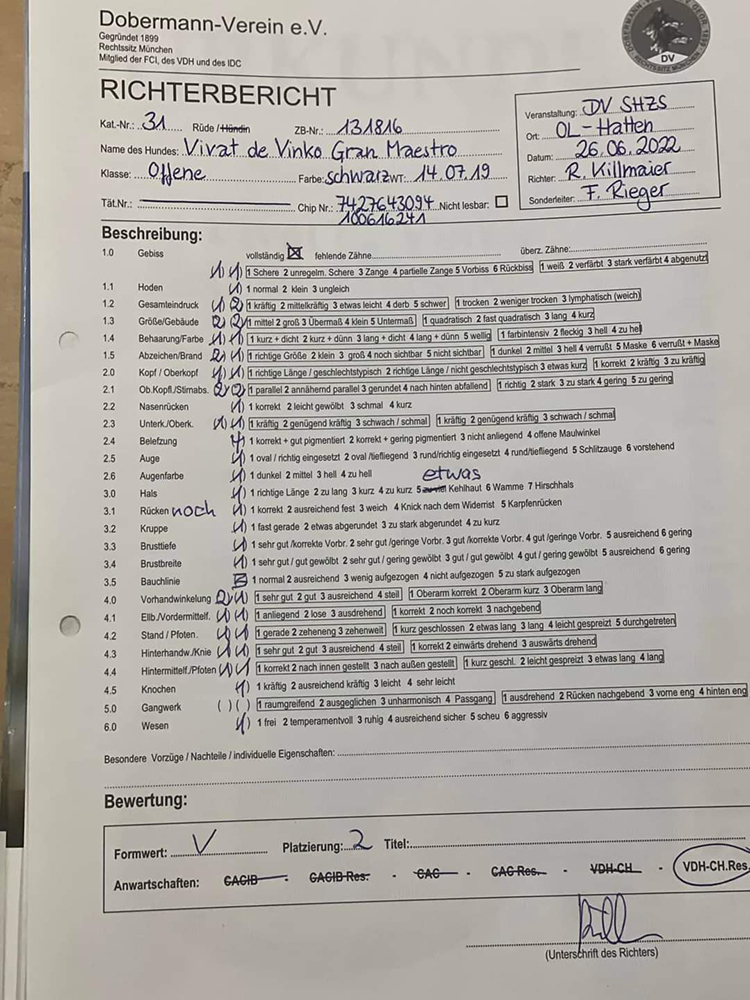 Dobermann-Verein e.V.
Gegründet 1899
Rechtssitz München
Mitglied der FCI, des VDH und des IDC
DV
RICHTERBERICHT
Kat.-Nr.: 31 Rüde / Hündin ZB-Nr.: 131816
Name des Hundes: Vivat de Vinko Gran Maestro
Klasse: Offene Farbe: schwarz WT: 14.07.19
Tät.Nr.: Chip Nr.: 7427643094 Nicht lesbar:
100616241
Veranstaltung: DV SHZS
Ort: OL-Hatten
Datum: 26.06.2022
Richter: R. Killmaier
Sonderleiter: F. Rieger
Beschreibung:
1.0 Gebiss vollständig fehlende Zähne überz. Zähne:
(1) (1) 1 Schere 2 unregelm. Schere 3 Zange 4 partielle Zange 5 Vorbiss 6 Rückbiss 1 weiß 2 verfärbt 3 stark verfärbt 4 abgenutzt
1.1 Hoden (1) 1 normal 2 klein 3 ungleich
1.2 Gesamteindruck (1) (2) 1 kräftig 2 mittelkräftig 3 etwas leicht 4 derb 5 schwer 1 trocken 2 weniger trocken 3 lymphatisch (weich)
1.3 Größe/Gebäude (2) (2) 1 mittel 2 groß 3 Übermaß 4 klein 5 Untermaß 1 quadratisch 2 fast quadratisch 3 lang 4 kurz
1.4 Behaarung/Farbe (1) (1) 1 kurz + dicht 2 kurz + dünn 3 lang + dicht 4 lang + dünn 5 wellig 1 farbintensiv 2 fleckig 3 hell 4 zu hell
1.5 Abzeichen/Brand (2) (1) 1 richtige Größe 2 klein 3 groß 4 noch sichtbar 5 nicht sichtbar 1 dunkel 2 mittel 3 hell 4 verrußt 5 Maske 6 verrußt + Maske
2.0 Kopf / Oberkopf (1) (1) 1 richtige Länge / geschlechtstypisch 2 richtige Länge / nicht geschlechtstypisch 3 etwas kurz 1 korrekt 2 kräftig 3 zu kräftig
2.1 Ob.Kopfl./Stirnabs. (2) (2) 1 parallel 2 annähernd parallel 3 gerundet 4 nach hinten abfallend 1 richtig 2 stark 3 zu stark 4 gering 5 zu gering
2.2 Nasenrücken (1) 1 korrekt 2 leicht gewölbt 3 schmal 4 kurz
2.3 Unterk./Oberk. (1) (1) 1 kräftig 2 genügend kräftig 3 schwach / schmal 1 kräftig 2 genügend kräftig 3 schwach / schmal
2.4 Belefzung (1) 1 korrekt + gut pigmentiert 2 korrekt + gering pigmentiert 3 nicht anliegend 4 offene Maulwinkel
2.5 Auge (1) 1 oval / richtig eingesetzt 2 oval /tiefliegend 3 rund/richtig eingesetzt 4 rund/tiefliegend 5 Schlitzauge 6 vorstehend
2.6 Augenfarbe (1) 1 dunkel 2 mittel 3 hell 4 zu hell etwas
3.0 Hals (1) 1 richtige Länge 2 zu lang 3 kurz 4 zu kurz 5 zu viel Kehlhaut 6 Wamme 7 Hirschhals
3.1 Rücken noch (1) 1 korrekt 2 ausreichend fest 3 weich 4 Knick nach dem Widerrist 5 Karpfenrücken
3.2 Kruppe (1) 1 fast gerade 2 etwas abgerundet 3 zu stark abgerundet 4 zu kurz
3.3 Brusttiefe (1) 1 sehr gut /korrekte Vorbr. 2 sehr gut /geringe Vorbr. 3 gut /korrekte Vorbr. 4 gut /geringe Vorbr. 5 ausreichend 6 gering
3.4 Brustbreite (1) 1 sehr gut / gut gewölbt 2 sehr gut / gering gewölbt 3 gut / gut gewölbt 4 gut / gering gewölbt 5 ausreichend 6 gering
3.5 Bauchlinie 1 normal 2 ausreichend 3 wenig aufgezogen 4 nicht aufgezogen 5 zu stark aufgezogen
4.0 Vorhandwinkelung (2) (1) 1 sehr gut 2 gut 3 ausreichend 4 steil 1 Oberarm korrekt 2 Oberarm kurz 3 Oberarm lang
4.1 Ellb./Vordermittelf. (1) (1) 1 anliegend 2 lose 3 ausdrehend 1 korrekt 2 noch korrekt 3 nachgebend
4.2 Stand / Pfoten. (1) (1) 1 gerade 2 zeheneng 3 zehenweit 1 kurz geschlossen 2 etwas lang 3 lang 4 leicht gespreizt 5 durchgetreten
4.3 Hinterhandw./Knie (1) (1) 1 sehr gut 2 gut 3 ausreichend 4 steil 1 korrekt 2 einwärts drehend 3 auswärts drehend
4.4 Hintermittelf./Pfoten (1) (1) 1 korrekt 2 nach innen gestellt 3 nach außen gestellt 1 kurz geschl. 2 leicht gespreizt 3 etwas lang 4 lang
4.5 Knochen (1) 1 kräftig 2 ausreichend kräftig 3 leicht 4 sehr leicht
5.0 Gangwerk ( ) ( ) 1 raumgreifend 2 ausgeglichen 3 unharmonisch 4 Passgang 1 ausdrehend 2 Rücken nachgebend 3 vorne eng 4 hinten eng
6.0 Wesen (1) 1 frei 2 temperamentvoll 3 ruhig 4 ausreichend sicher 5 scheu 6 aggressiv
Besondere Vorzüge / Nachteile / individuelle Eigenschaften:
Bewertung:
Formwert: V Platzierung: 2 Titel:
Anwartschaften: CACIB - CACIB-Res. - CAC - CAC-Res. - VDH-CH - VDH-CH.Res
(Unterschrift des Richters)